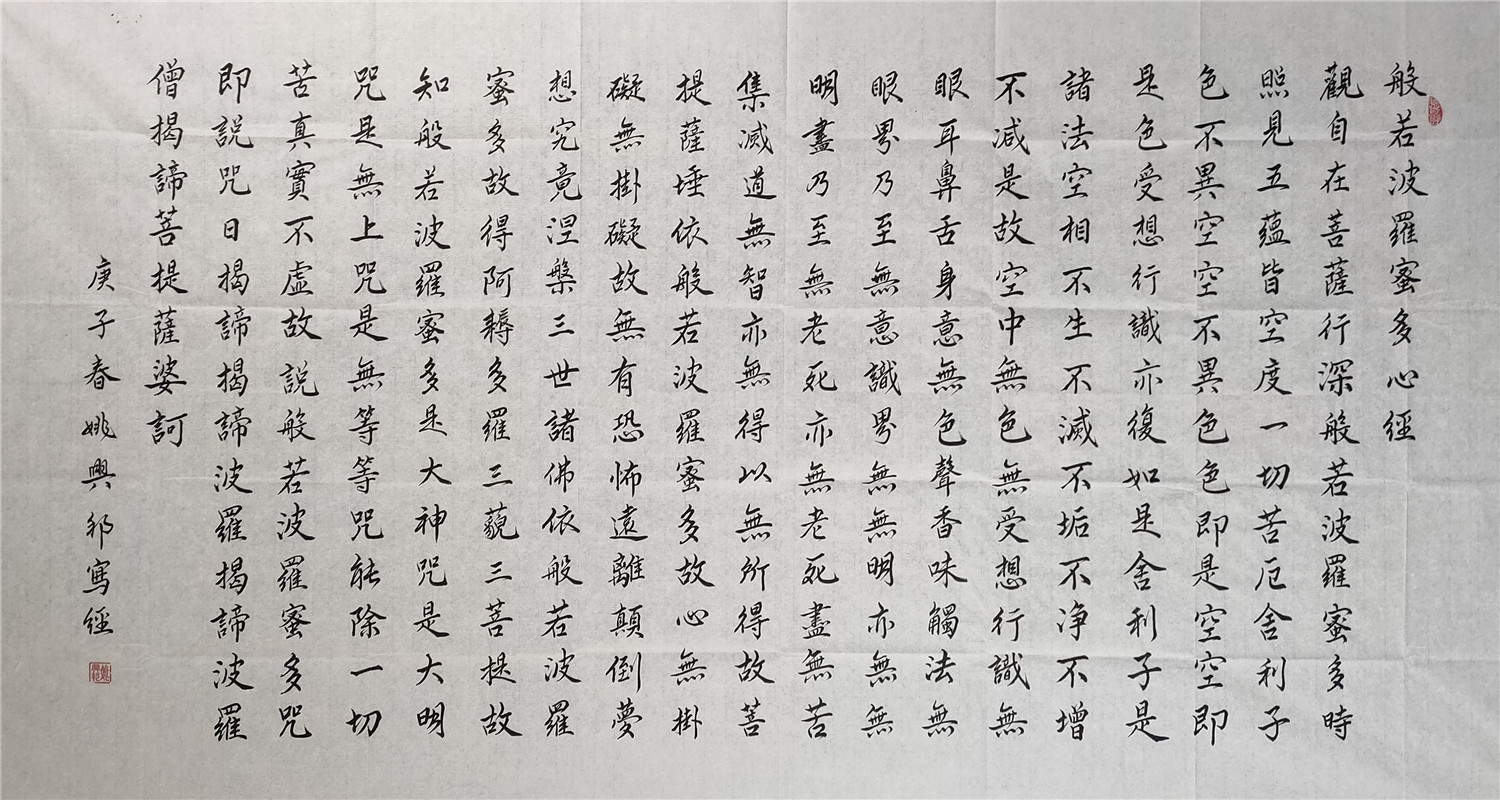 般若波羅蜜多心經
觀自在菩薩行深般若波羅蜜多時
照見五蘊皆空度一切苦厄舍利子
色不異空空不異色色即是空空即
是色受想行識亦復如是舍利子是
諸法空相不生不滅不垢不净不增
不減是故空中無色無受想行識無
眼耳鼻舌身意無色聲香味觸法無
眼界乃至無意識界無無明亦無無
明盡乃至無老死亦無老死盡無苦
集滅道無智亦無得以無所得故菩
提薩埵依般若波羅蜜多故心無掛
礙無掛礙故無有恐怖遠離顛倒夢
想究竟涅槃三世諸佛依般若波羅
蜜多故得阿耨多羅三藐三菩提故
知般若波羅蜜多是大神咒是大明
咒是無上咒是無等等咒能除一切
苦真實不虛故說般若波羅蜜多咒
即說咒曰揭諦揭諦波羅揭諦波羅
僧揭諦菩提薩婆訶
庚子春姚興邦寫經